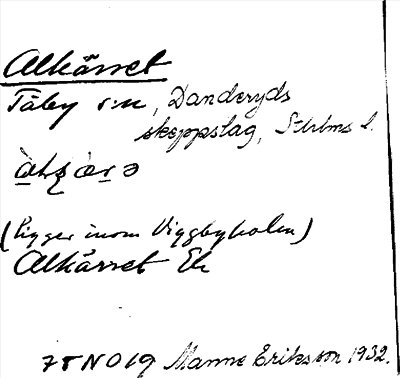 Alkärret
Täby s:n, Danderyds
skeppslag, Sthlms l.
(ligger inom Viggbyholm)
Alkärret Ek
75 NO 19 Manne Eriksson 1932.